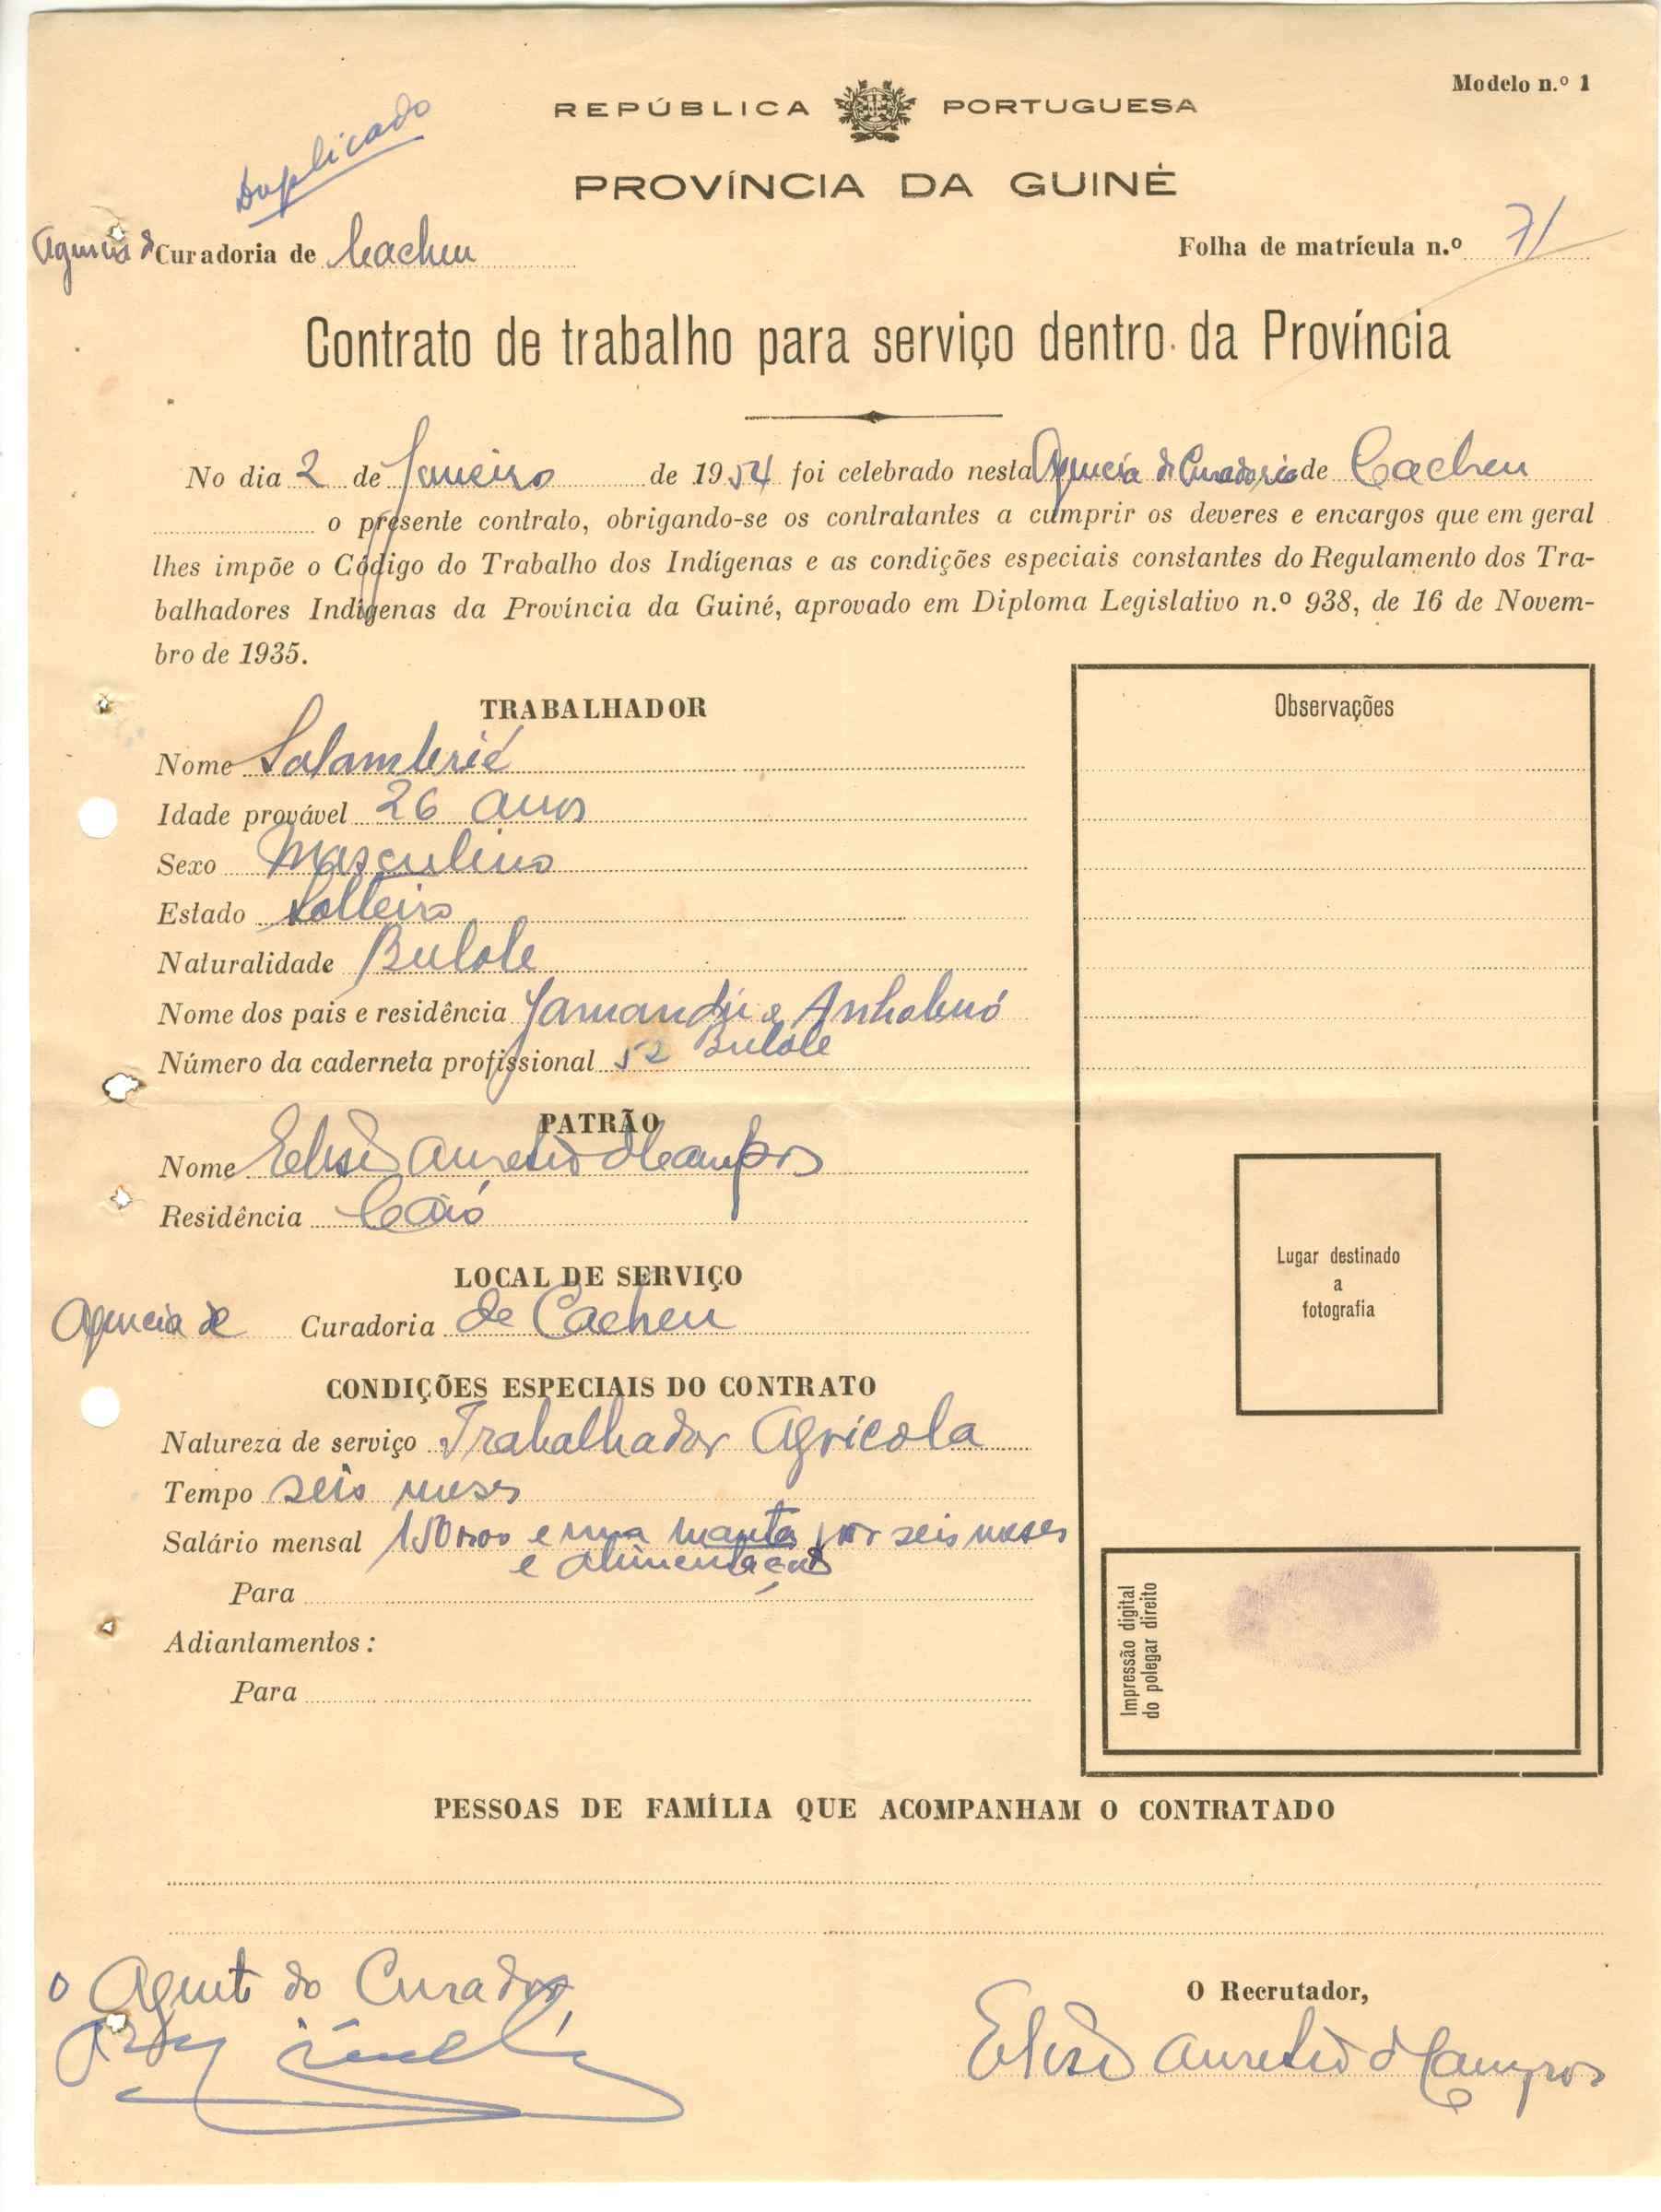 Modelo n.º 1
REPÚBLICA PORTUGUESA
Duplicado
PROVÍNCIA DA GUINÉ
Agencia de Curadoria de Cacheu
Folha de matrícula n.º 71
Contrato de trabalho para serviço dentro da Província
No dia 2 de Janeiro de 1954 foi celebrado nesta Agencia de Curadoria de Cacheu
o presente contrato, obrigando-se os contratantes a cumprir os deveres e encargos que em geral
lhes impõe o Código do Trabalho dos Indígenas e as condições especiais constantes do Regulamento dos Tra-
balhadores Indígenas da Província da Guiné, aprovado em Diploma Legislativo n.º 938, de 16 de Novem-
bro de 1935.
TRABALHADOR
Observações
Nome Salambrié
Idade provável 26 anos
Sexo Masculino
Estado Solteiro
Naturalidade Bulole
Nome dos pais e residência e
Bulole
Número da caderneta profissional 52
PATRÃO
Nome Aurelio d Campos
Residência Caió
Lugar destinado
a
fotografia
LOCAL DE SERVIÇO
Agencia de Curadoria de Cacheu
CONDIÇÕES ESPECIAIS DO CONTRATO
Natureza de serviço Trabalhador Agricola
Tempo seis meses
Salário mensal e uma manta por seis meses
e alimentação
Para
Adiantamentos :
Para
Impressão digital
do polegar direito
PESSOAS DE FAMÍLIA QUE ACOMPANHAM O CONTRATADO
O Agente do Curador,
O Recrutador,
Aurelio d Campos